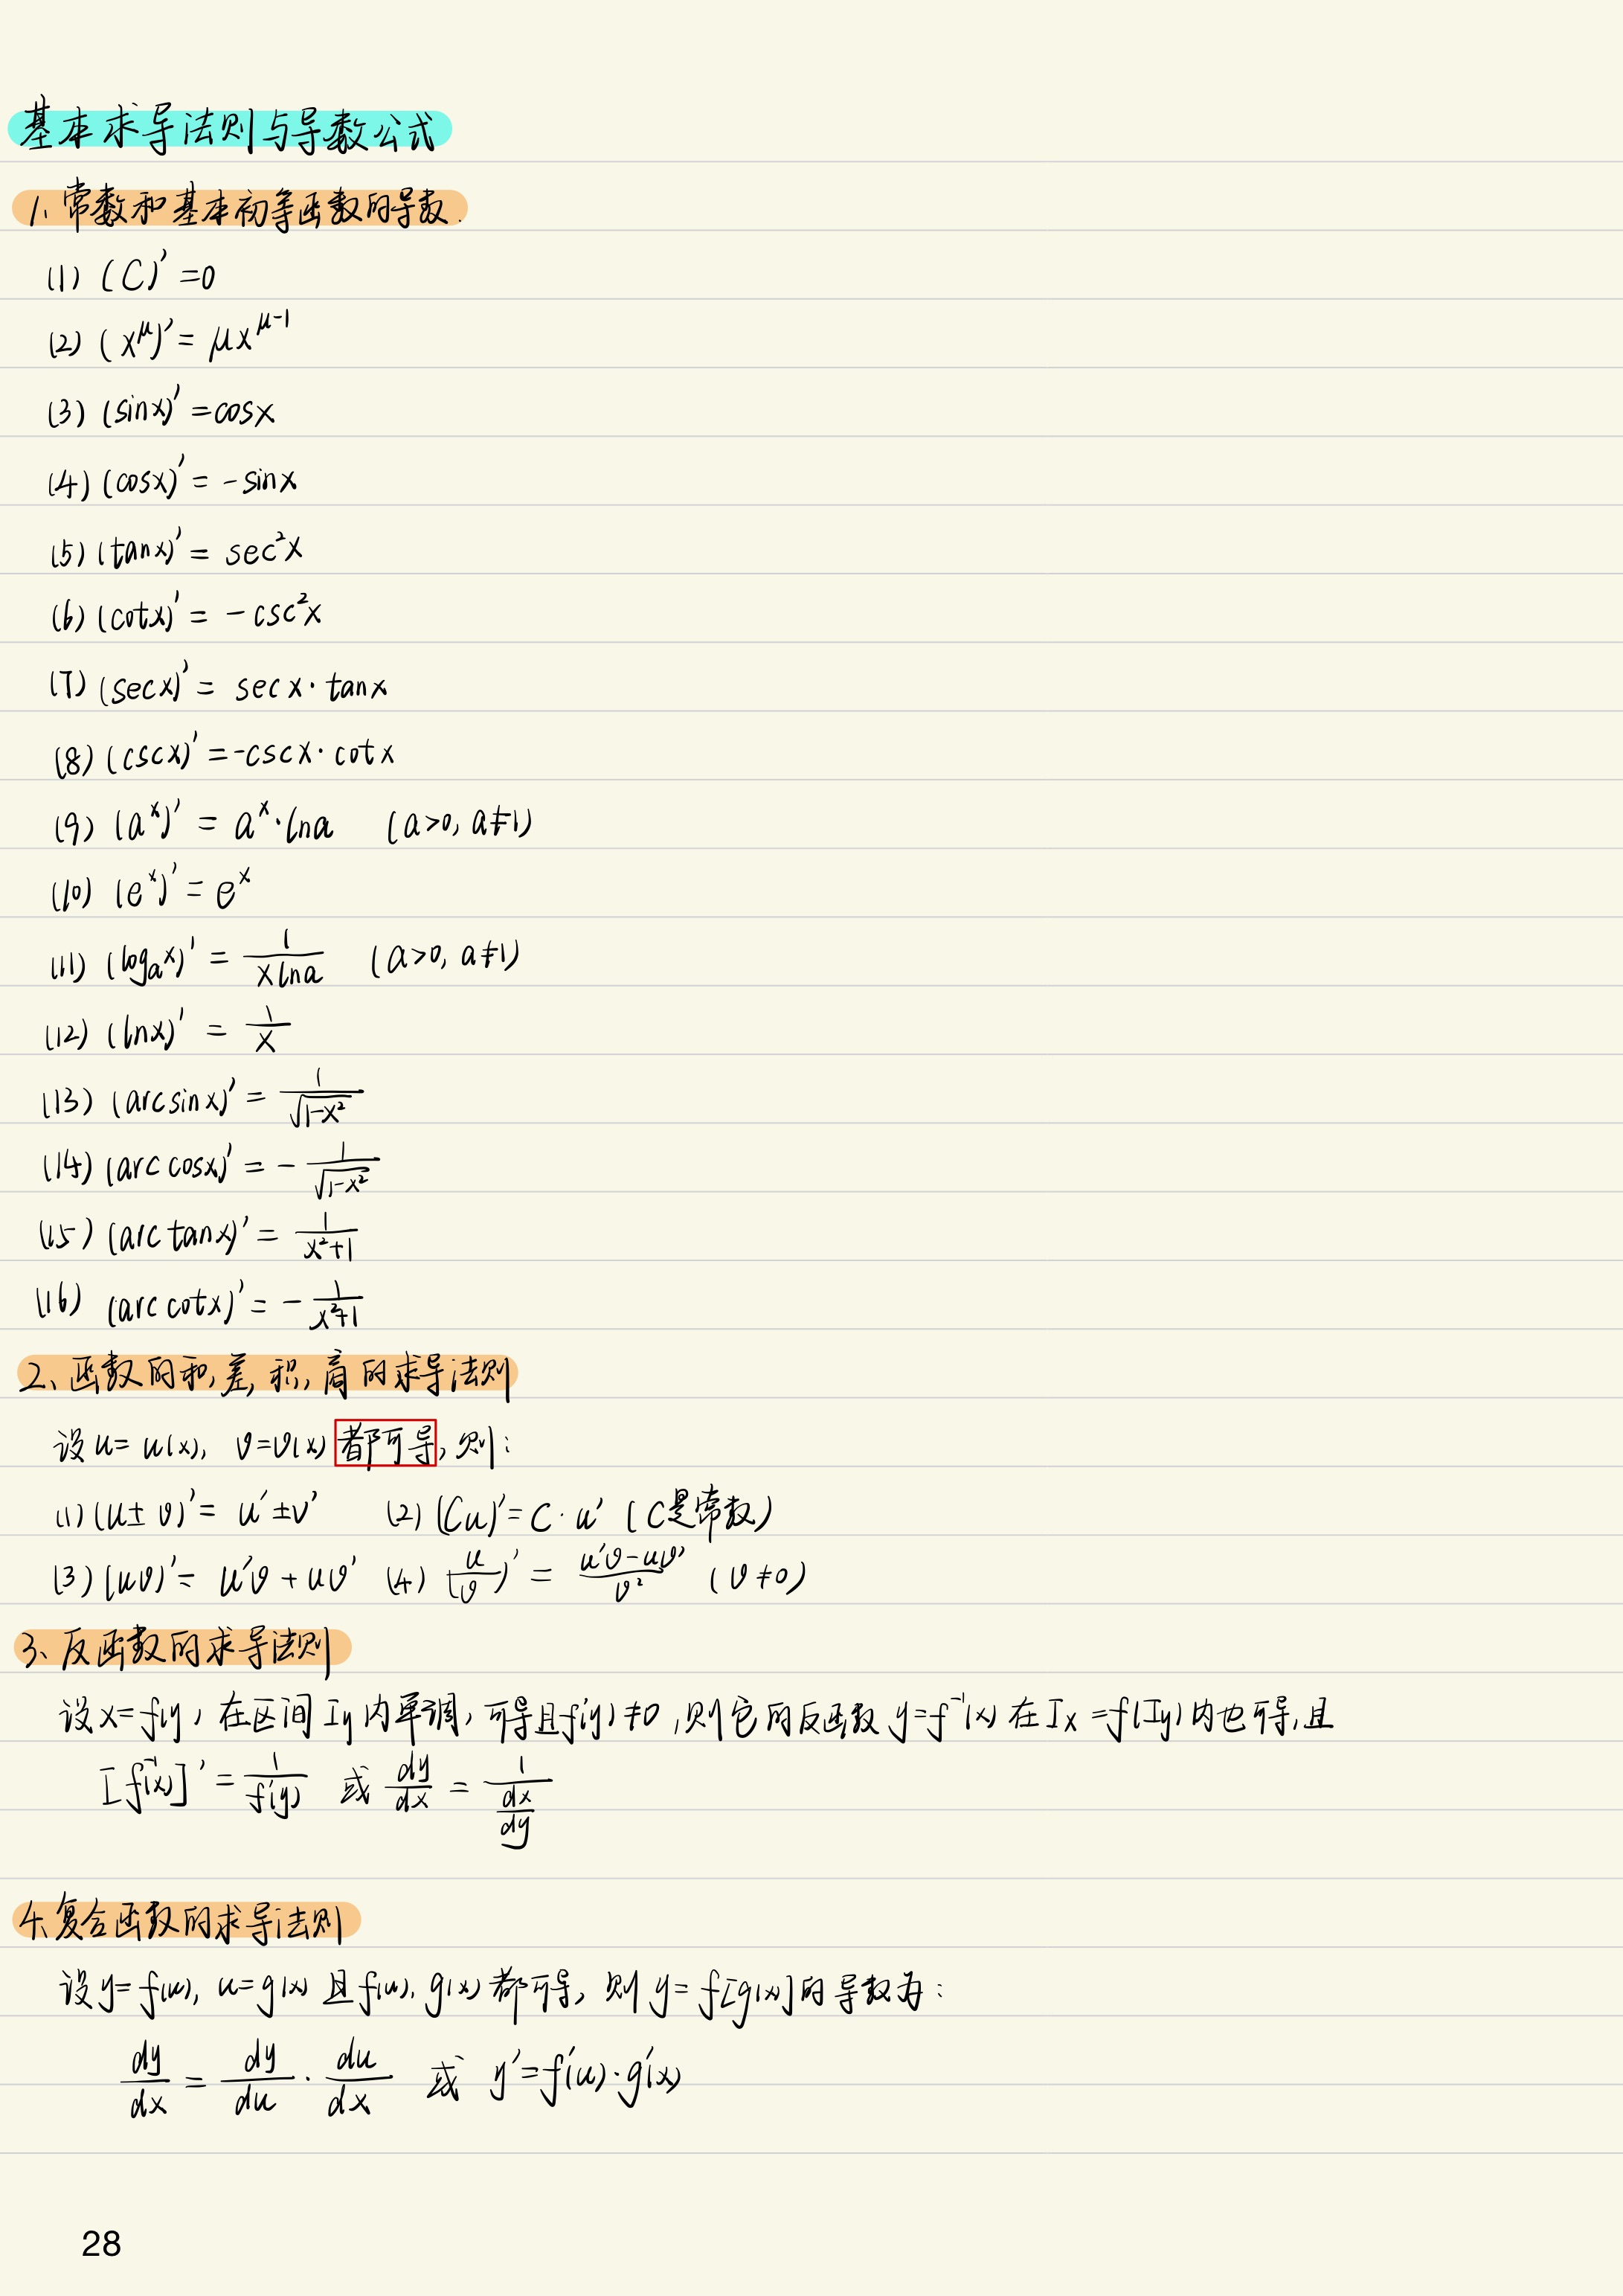 基本求导法则与导数公式
1、常数和基本初等函数的导数.
(1) (C)′=0
(2) (x^μ)′=μx^(μ-1)
(3) (sinx)′=cosx
(4) (cosx)′=-sinx
(5) (tanx)′=sec²x
(6) (cotx)′=-csc²x
(7) (secx)′=secx·tanx
(8) (cscx)′=-cscx·cotx
(9) (a^x)′=a^x·lna (a>0, a≠1)
(10) (e^x)′=e^x
(11) (log_a x)′=1/(xlna) (a>0, a≠1)
(12) (lnx)′=1/x
(13) (arcsinx)′=1/√(1-x²)
(14) (arccosx)′=-1/√(1-x²)
(15) (arctanx)′=1/(x²+1)
(16) (arccotx)′=-1/(x²+1)
2、函数的和,差,积,商的求导法则
设u=u(x), v=v(x)都可导,则:
(1) (u±v)′=u′±v′ (2) (Cu)′=C·u′ (C是常数)
(3) (uv)′=u′v+uv′ (4) (u/v)′=(u′v-uv′)/v² (v≠0)
3、反函数的求导法则
设x=f(y)在区间Iy内单调,可导且f′(y)≠0,则它的反函数y=f⁻¹(x)在Ix=f(Iy)内也可导,且
[f⁻¹(x)]′=1/f′(y) 或 dy/dx=1/(dx/dy)
4、复合函数的求导法则
设y=f(u), u=g(x)且f(u), g(x)都可导,则y=f[g(x)]的导数为:
dy/dx=dy/du·du/dx 或 y′=f′(u)·g′(x)
28